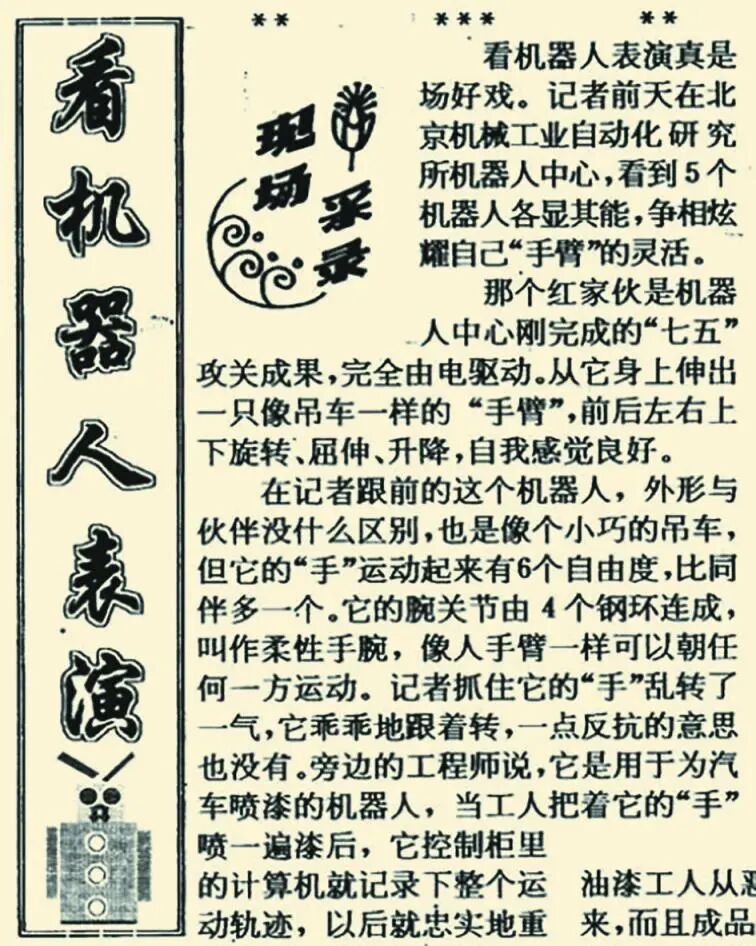 ** *** **
看机器人表演
现场
采录
看机器人表演真是
场好戏。记者前天在北
京机械工业自动化研究
所机器人中心，看到5个
机器人各显其能，争相炫
耀自己“手臂”的灵活。
那个红家伙是机器
人中心刚完成的“七五”
攻关成果，完全由电驱动。从它身上伸出
一只像吊车一样的“手臂”，前后左右上
下旋转、屈伸、升降，自我感觉良好。
在记者跟前的这个机器人，外形与
伙伴没什么区别，也是像个小巧的吊车，
但它的“手”运动起来有6个自由度，比同
伴多一个。它的腕关节由4个钢环连成，
叫作柔性手腕，像人手臂一样可以朝任
何一方运动。记者抓住它的“手”乱转了
一气，它乖乖地跟着转，一点反抗的意思
也没有。旁边的工程师说，它是用于为汽
车喷漆的机器人，当工人把着它的“手”
喷一遍漆后，它控制柜里
的计算机就记录下整个运
动轨迹，以后就忠实地重
油漆工人从恶
来，而且成品